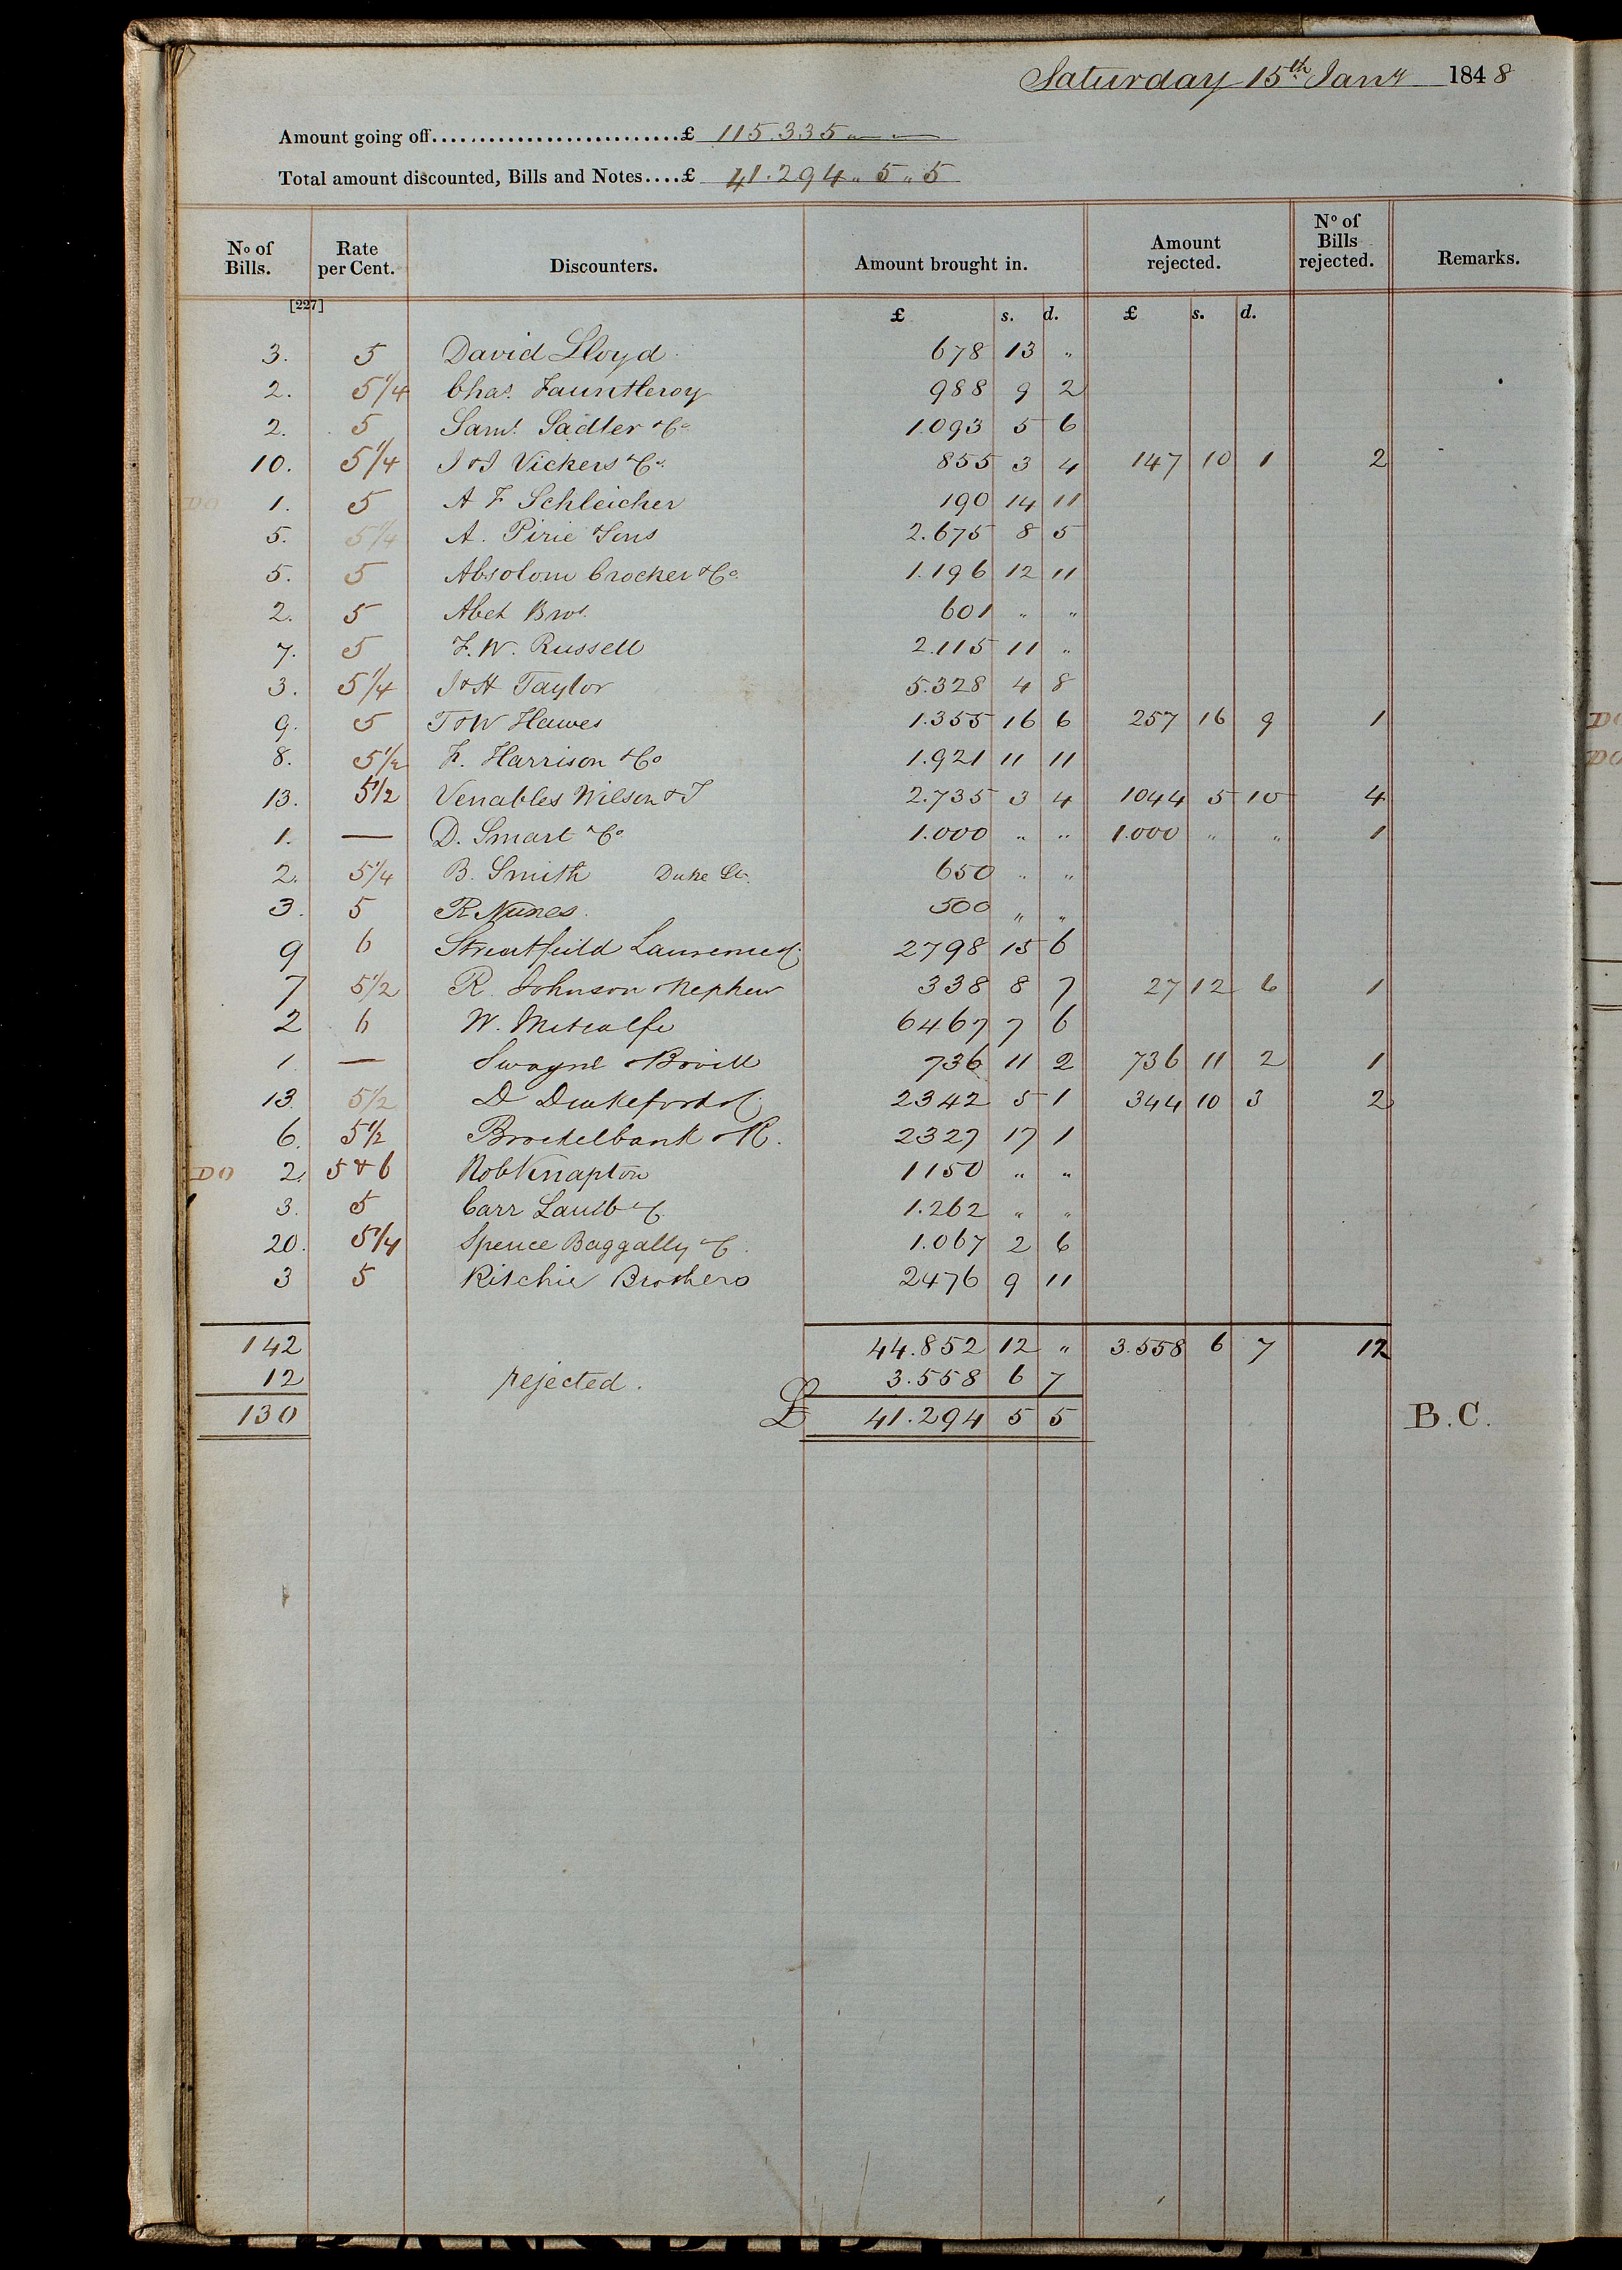 Saturday 15th Jany 1848
Amount going off..........................£ 115.335 " —
Total amount discounted, Bills and Notes....£ 41.294 " 5 " 5
No of Bills. Rate per Cent. Discounters. Amount brought in. Amount rejected. No of Bills rejected. Remarks.
[227] £ s. d. £ s. d.
3. 5 David Lloyd 678 13 "
2. 5 1/4 Chas. Fauntleroy 988 9 2
2. 5 Saml. Sadler & Co 1.093 5 6
10. 5 1/4 J & J Vickers & Co. 855 3 4 147 10 1 2
DO 1. 5 A F Schleicher 190 14 11
5. 5 1/4 A. Pirie & Sons 2.675 8 5
5. 5 Absolom Crocker & Co. 1.196 12 11
2. 5 Abet Bros. 601 " "
7. 5 F. W. Russell 2.115 11 "
3. 5 1/4 J & H Taylor 5.328 4 8
9. 5 T & W Hawes 1.355 16 6 257 16 9 1
8. 5 1/2 F. Harrison & Co 1.921 11 11
13. 5 1/2 Venables Wilson & T 2.735 3 4 1044 5 10 4
1. — D. Smart & Co 1.000 " " 1.000 " " 1
2. 5 1/4 B. Smith Duke St. 650 " "
3. 5 R Nunes. 500 " "
9 6 Streatfeild Laurence & C. 2798 15 6
7 5 1/2 R. Johnson & Nephew 338 8 7 27 12 6 1
2 6 W. Metcalfe 6467 7 6
1. — Swayne & Bovill 736 11 2 736 11 2 1
13. 5 1/2 D Drakeford & C. 2342 5 1 344 10 3 2
6. 5 1/2 Brockelbank & R. 2327 17 1
DO 2. 5 & 6 Rob Knapton 1150 " "
3. 5 Carr Lamb & C. 1.262 " "
20. 5 1/4 Spence Baggally & C. 1.067 2 6
3 5 Ritchie Brothers 2476 9 11
142 44.852 12 " 3.558 6 7 12
12 rejected. 3.558 6 7
130 £ 41.294 5 5 B.C.